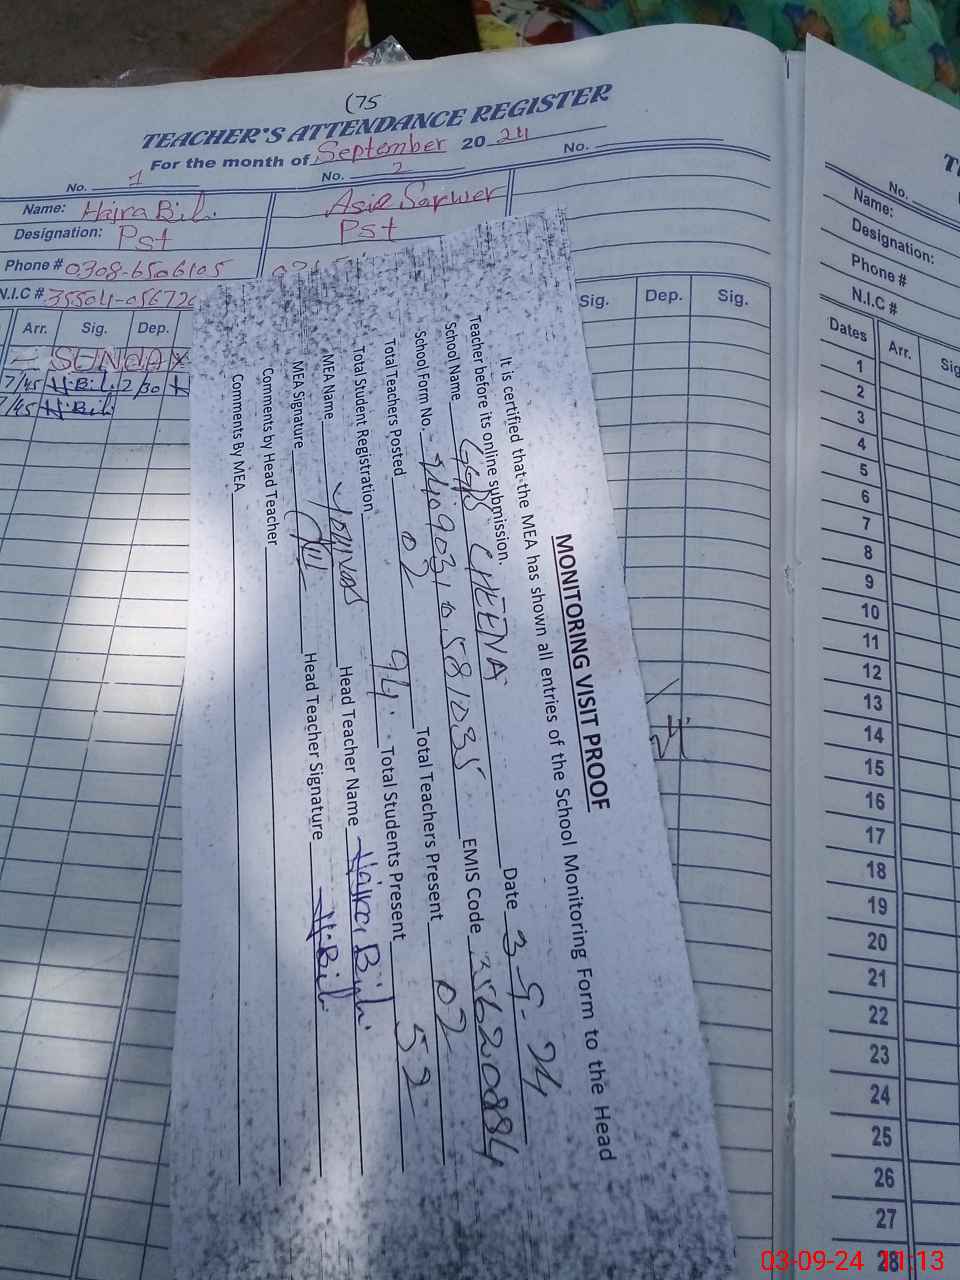 (75
TEACHER'S ATTENDANCE REGISTER
For the month of September 20 24
No. 1 No. 2 No.
Name: Hajra Bibi Asia Sarwer
Designation: Pst Pst
Phone # 0308-6506105
N.I.C # 35504-05672
Arr. Sig. Dep. Sig. Dep. Sig.
SUNdAY
7/45 H.Bibi 2/30 H
7/45 H.Bibi
MONITORING VISIT PROOF
It is certified that the MEA has shown all entries of the School Monitoring Form to the Head
Teacher before its online submission.
School Name GGPS CHEENA Date 3-9-24
School Form No. EMIS Code 35620884
Total Teachers Posted 02 Total Teachers Present 02
Total Student Registration 94 Total Students Present 52
MEA Name Younas Head Teacher Name Hajra Bibi
MEA Signature Head Teacher Signature H.Bibi
Comments by Head Teacher
Comments By MEA
No.
Name:
Designation:
Phone #
N.I.C #
Dates Arr. Sig
1
2
3
4
5
6
7
8
9
10
11
12
13
14
15
16
17
18
19
20
21
22
23
24
25
26
27
28
03-09-24 11:13